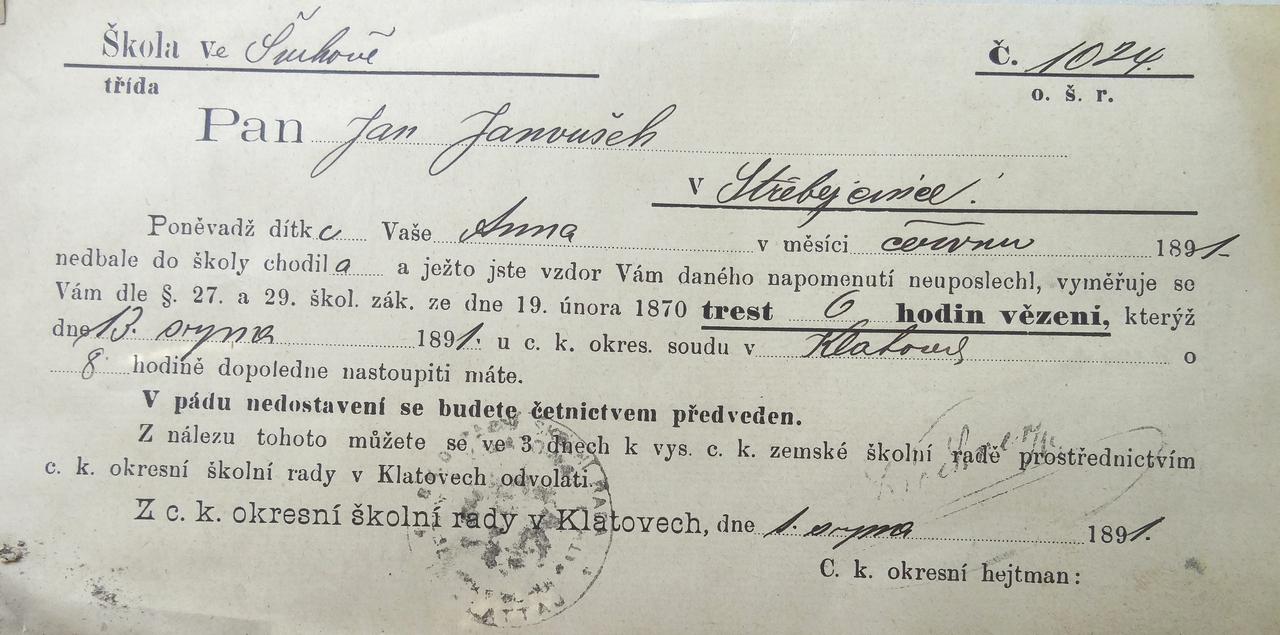 Škola ve Švihově
třída
Č. 1024.
o. š. r.
Pan Jan Janoušek
v Střebejčince!
Poněvadž dítko Vaše Anna v měsíci červnu 1891.
nedbale do školy chodila a ježto jste vzdor Vám daného napomenutí neuposlechl, vyměřuje se
Vám dle §. 27. a 29. škol. zák. ze dne 19. února 1870 trest 6 hodin vězení, kterýž
dne 13. srpna 1891. u c. k. okres. soudu v Klatovech o
8 hodině dopoledne nastoupiti máte.
V pádu nedostavení se budete četnictvem předveden.
Z nálezu tohoto můžete se ve 3 dnech k vys. c. k. zemské školní radě prostřednictvím
c. k. okresní školní rady v Klatovech odvolati.
Z c. k. okresní školní rady v Klatovech, dne 1. srpna 1891.
C. k. okresní hejtman: